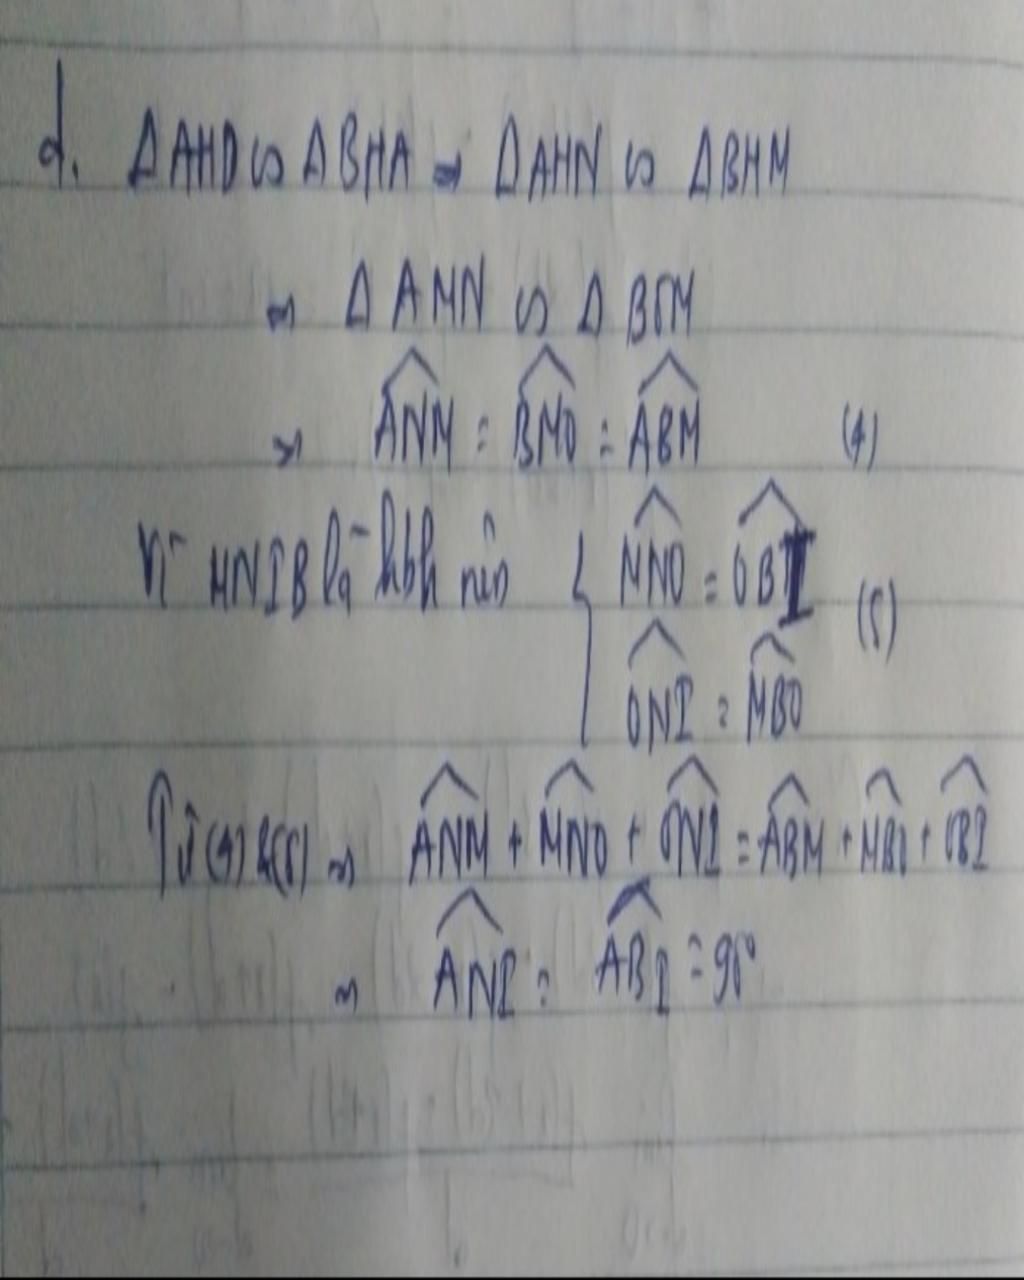 d. ΔAHD ∽ ΔBHA ⇒ ΔAHN ∽ ΔBHM
⇒ ΔAMN ∽ ΔBOM
⇒ \widehat{ANM} = \widehat{BMO} = \widehat{ABM} (4)
Vì MNIB là hbh nên { \widehat{MNO} = \widehat{OBI} (5)
\widehat{ONI} = \widehat{MBO}
Từ (4) & (5) ⇒ \widehat{ANM} + \widehat{MNO} + \widehat{ONI} = \widehat{ABM} + \widehat{MBO} + \widehat{OBI}
⇒ \widehat{ANI} = \widehat{ABI} = 90°